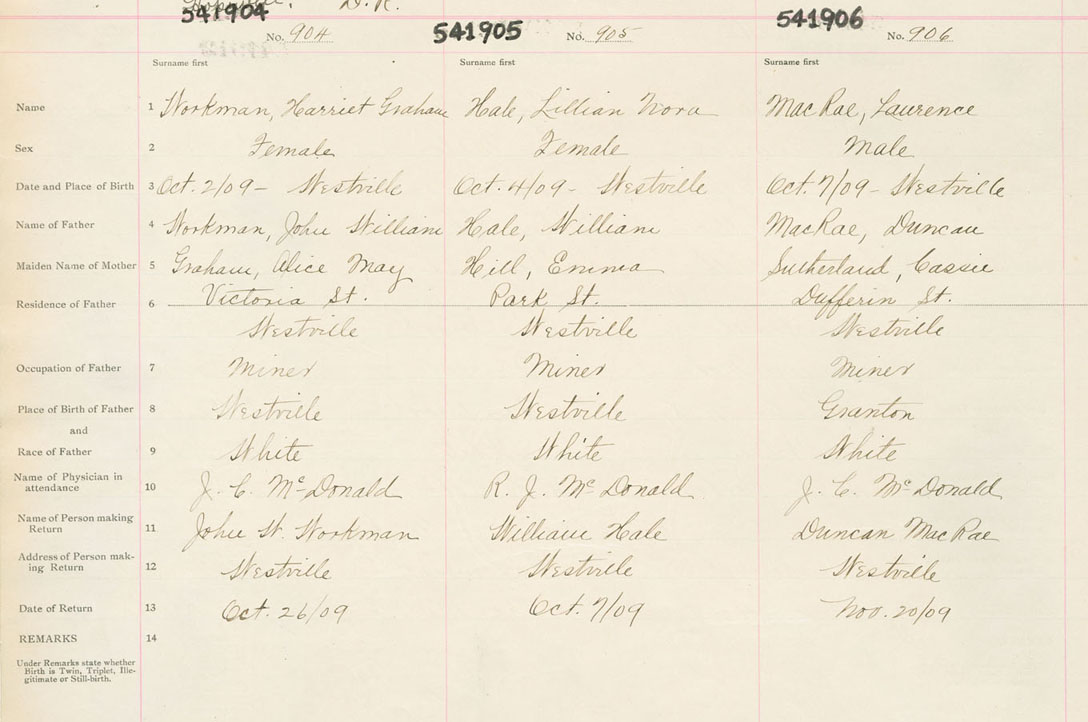 D. R.
541904 541905 541906
No. 904 No. 905 No. 906
Surname first Surname first Surname first
Name 1 Workman, Harriet Graham Hale, Lillian Nora MacRae, Laurence
Sex 2 Female Female Male
Date and Place of Birth 3 Oct. 2/09 - Westville Oct. 4/09 - Westville Oct. 7/09 - Westville
Name of Father 4 Workman, John William Hale, William MacRae, Duncan
Maiden Name of Mother 5 Graham, Alice May Hill, Emma Sutherland, Cassie
Residence of Father 6 Victoria St. Park St. Dufferin St.
Westville Westville Westville
Occupation of Father 7 Miner Miner Miner
Place of Birth of Father 8 Westville Westville Granton
and
Race of Father 9 White White White
Name of Physician in
attendance 10 J. C. McDonald R. J. McDonald J. C. McDonald
Name of Person making
Return 11 John W. Workman William Hale Duncan MacRae
Address of Person mak-
ing Return 12 Westville Westville Westville
Date of Return 13 Oct. 26/09 Oct. 7/09 Nov. 20/09
REMARKS 14
Under Remarks state whether
Birth is Twin, Triplet, Ille-
gitimate or Still-birth.